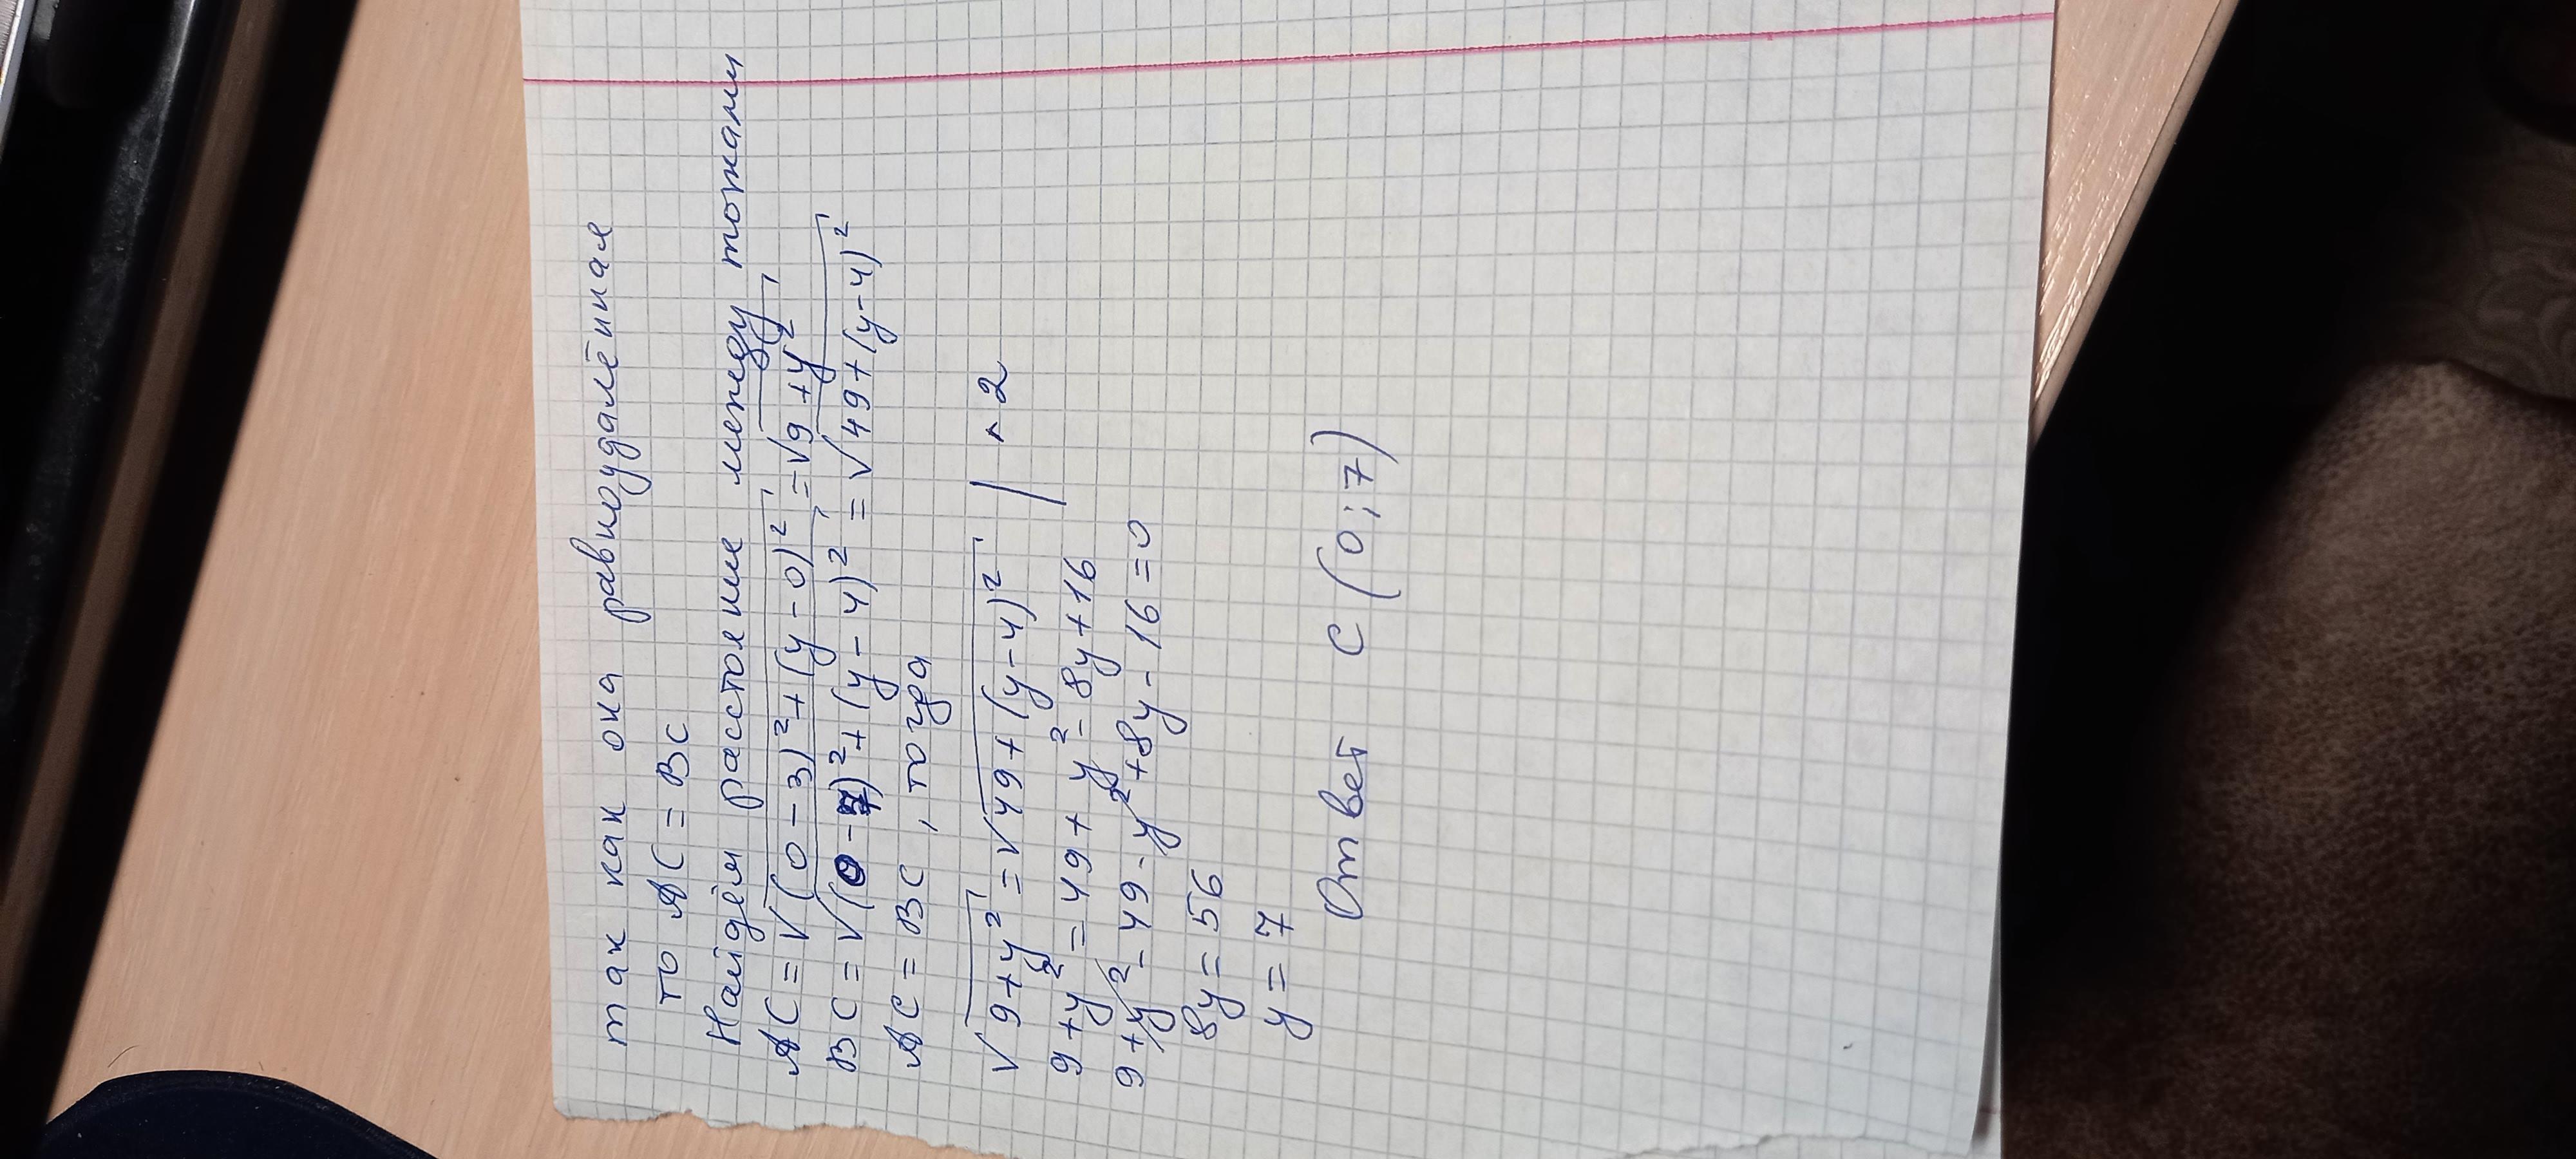 так как она равноудалённая
то AC = BC
Найдём расстояние между точками
AC = √(0-3)²+(y-0)² = √9+y²
BC = √(0-7)²+(y-4)² = √49+(y-4)²
AC = BC, тогда
√9+y² = √49+(y-4)² | ^2
9+y² = 49+y²-8y+16
9+y²-49-y²+8y-16=0
8y=56
y=7
Ответ C(0;7)